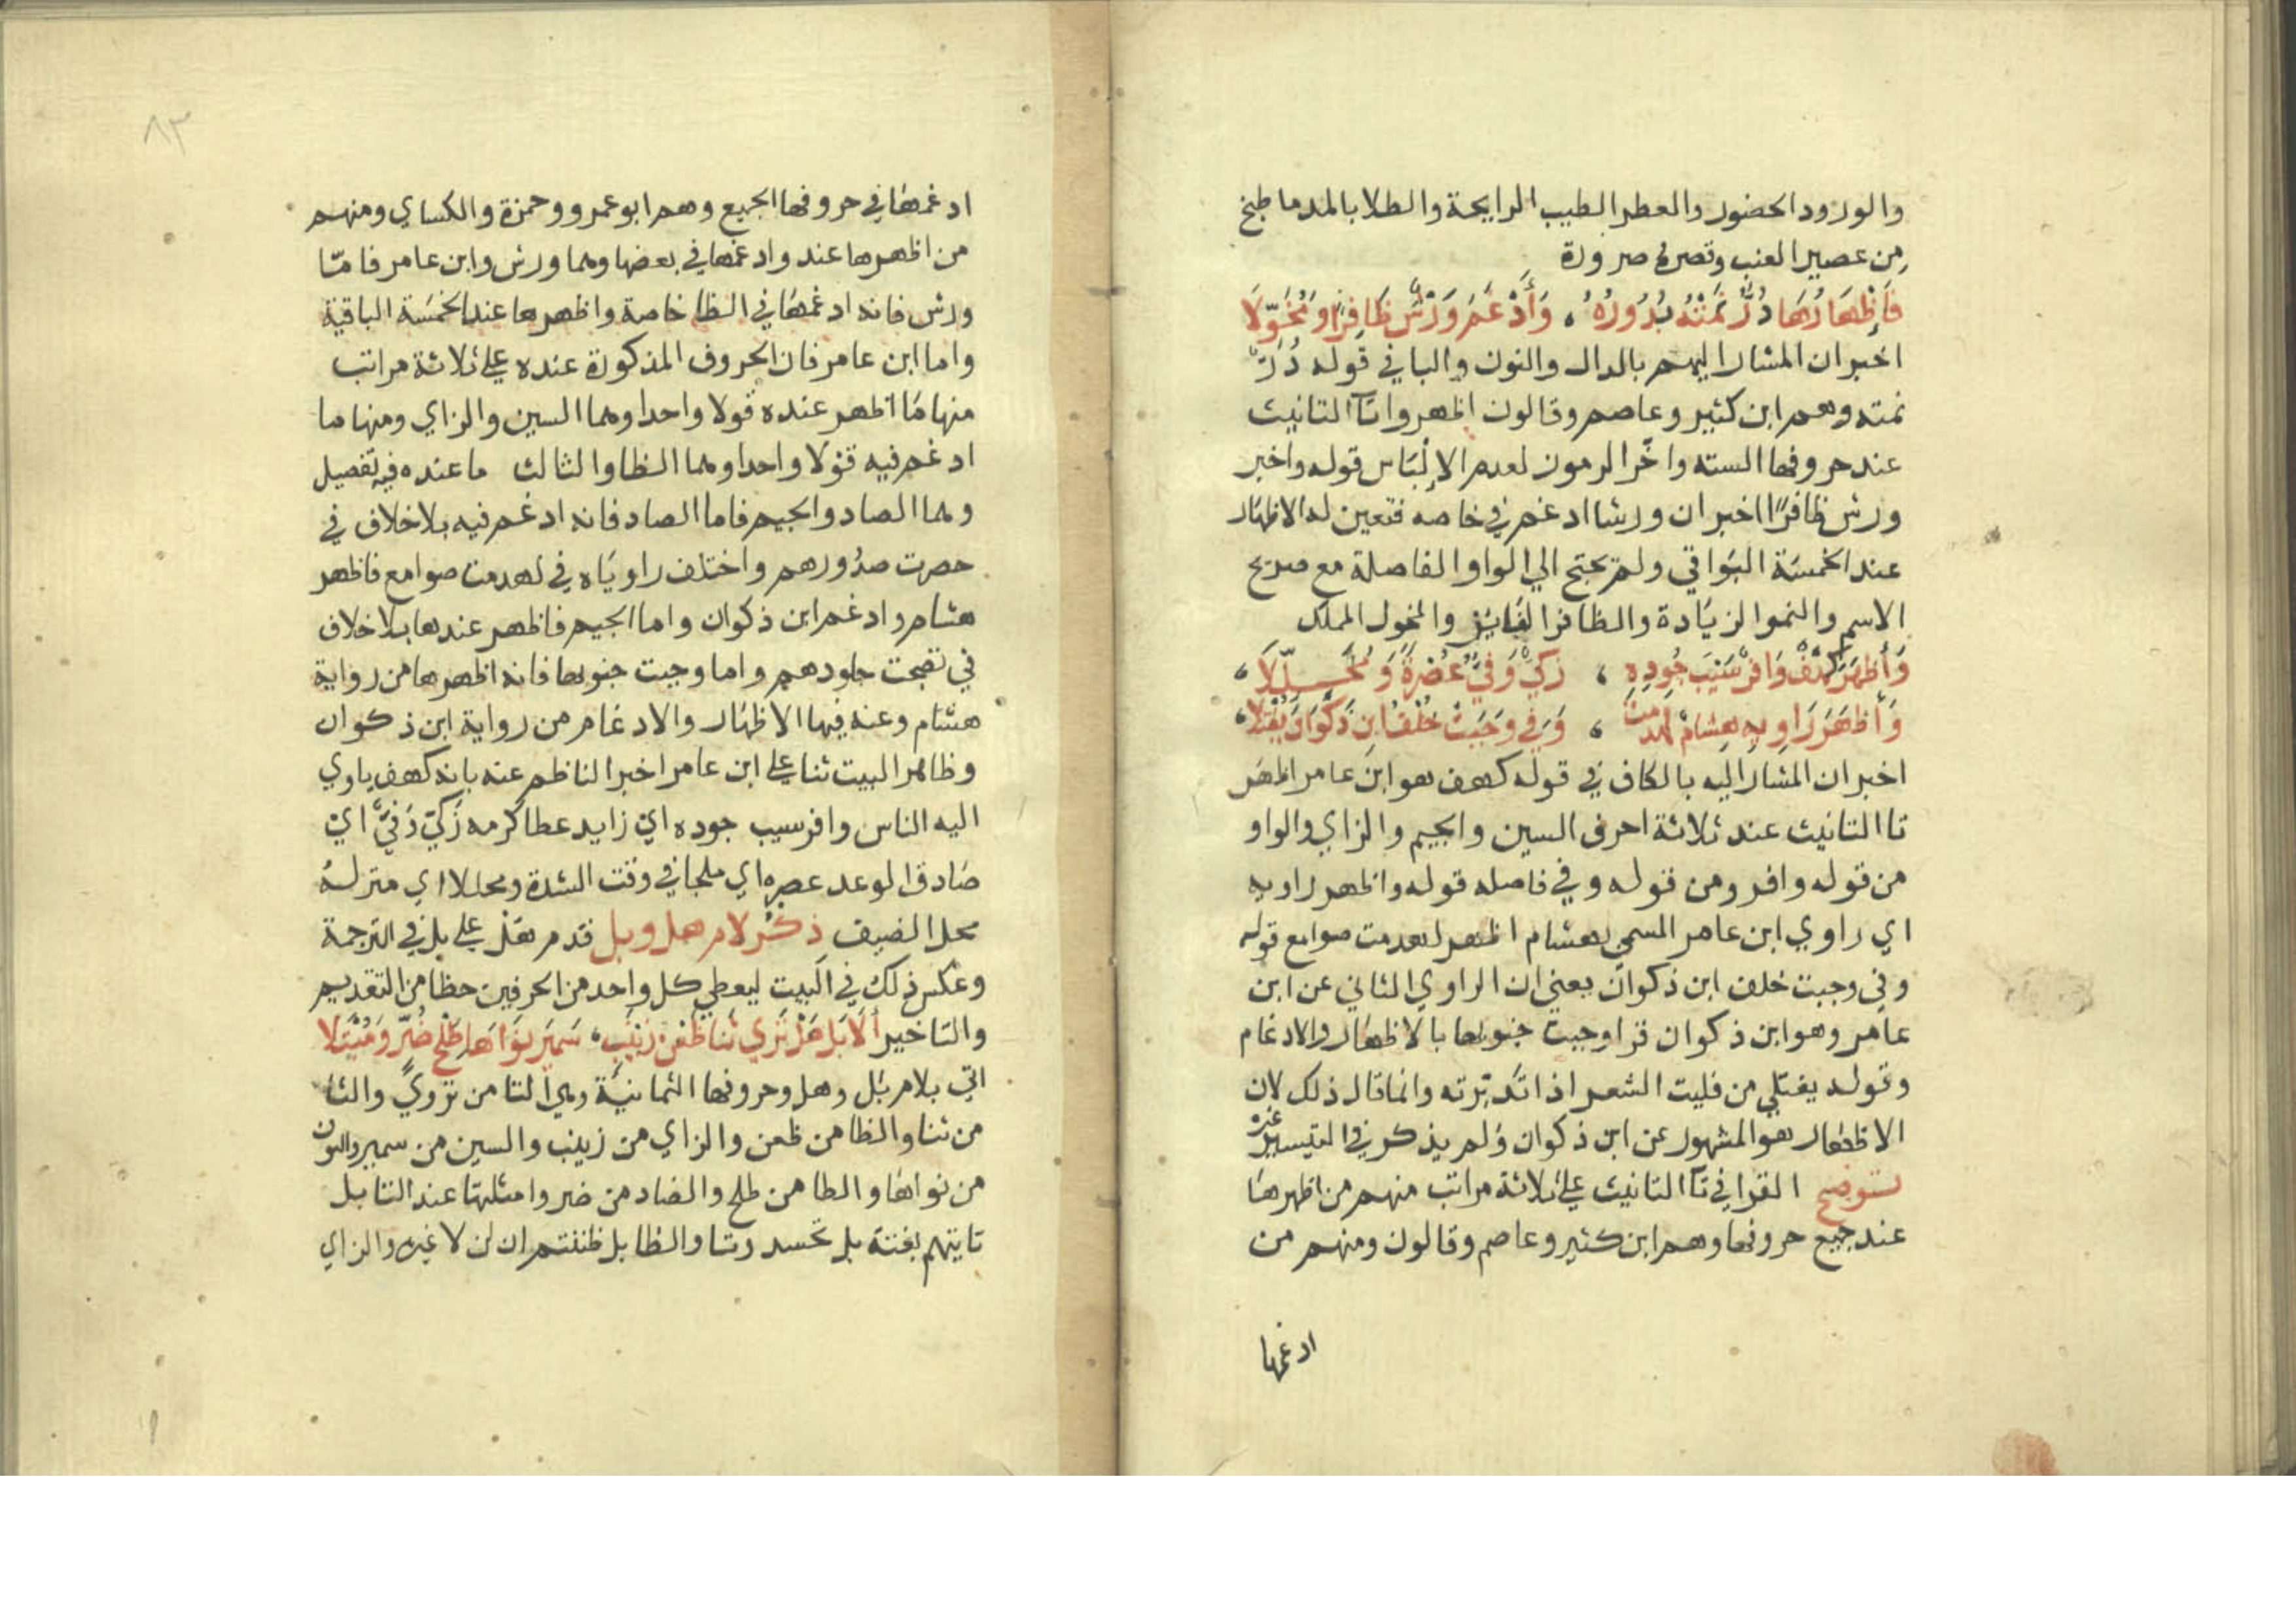 والورود الحضور والعطر الطيب الرايحة والطلا بالمد ما طبخ
من عصير العنب وقصره ضرورة
فَإِظْهَارُهَا دُرٌّ نَمَتْهُ بُدُورُهُ ، وَأَدْغَمَ وَرْشٌ ظَافِرًا وَمُخَوَّلَا
اخبر ان المشار اليهم بالدال والنون والبا في قوله دُرٌّ
نمته وهم ابن كثير وعاصم وقالون اظهروا تآ التانيث
عند حروفها السته واخّر الرموز لعدم الإلْبَاس قوله واخبر
ورش ظافرًا اخبر ان ورشا ادغم في خاصه فتعين له الاظهار
عند الخمسة البَواقي ولم يحتج الي الواو الفاصلة مع صريح
الاسم والنمو الزيَادة والظافر الفَايز والمخول المملك
وَأَظْهَرَ كَهْفٌ وَافِرٌ سَيْبُ جُودِهِ ، زَكِيٌّ وَفِيٌّ عُصْرَةً وَمُحَلَّلَا ،
وَأَظْهَرَ رَاوِيهِ هِشَامٌ لَهُدِّمَتْ ، وَفِي وَجَبَتْ خُلْفُ ابْنِ ذَكْوَانَ يُفْتَلَا ،
اخبر ان المشار اليه بالكاف في قوله كهف هو ابن عامر اظهر
تا التانيث عند ثلاثة احرف السين والجيم والزاي والواو
من قوله وافر ومن قوله وفي فاصله قوله واظهر راويه
اي راوي ابن عامر المسمي بهشام اظهر لهدمت صوامع قوله
وفي وجبت خلف ابن ذكوان يعني ان الراوي الثاني عن ابن
عامر وهو ابن ذكوان قرا وجبت جنوبها بالاظهار والادغام
وقوله يفتلي من فليت الشعر اذا تدبرته وانما قال ذلك لان
الاظهار هو المشهور عن ابن ذكوان ولم يذكر في التيسير غيره
توضيح القرا في تآ التانيث علي ثلاثة مراتب منهم من اظهرها
عند جميع حروفها وهم ابن كثير وعاصم وقالون ومنهم من
ادغمها
٨٣
ادغمها في حروفها الجميع وهم ابو عمرو وحمزة والكساي ومنهم
من اظهرها عند وادغمها في بعضها وهما ورش وابن عامر فامّا
ورش فانه ادغمها في الظا خاصة واظهرها عند الخمسة الباقية
واما ابن عامر فان الحروف المذكورة عنده علي ثلاثة مراتب
منها مَا اظهر عنده قولا واحدا وهما السين والزاي ومنها ما
ادغم فيه قولا واحدا وهما الظا والثا والثالث ما عنده فيه تفصيل
وهما الصاد والجيم فاما الصاد فانه ادغم فيه بلا خلاف في
حصرت صدُورهم واختلف راويَاه في لهدمت صوامع فاظهر
هشام وادغم ابن ذكوان واما الجيم فاظهر عندها بلا خلاف
في نضجت جلودهم واما وجبت جنوبها فانه اظهرها من رواية
هشام وعنه فيها الاظهار والادغام من رواية ابن ذكوان
وظاهر البيت ثنا علي ابن عامر اخبر الناظم عنه بانه كهف ياوي
اليه الناس وافر سيب جوده اي زايد عطا كرمه زَكيّ وَفيّ اي
صَادق الوعد عصره اي ملجا في وقت الشدة ومحللا اي منزله
محل الضيف ذكر لام هل وبل قدم هَل علي بل في الترجمة
وعكس ذلك في البيت ليعطي كل واحد من الحرفين حظا من التقديم
والتاخير أَلَا بَلْ هَلْ تَرْوِي ثَنَا ظَعْنِ زَيْنَبٍ ، سَمِيرَ نَوَاهَا طَلْحَ ضُرٍّ وَمُبْتَلَا
اتي بلام بَل وهل وحروفها الثمانيَة وهي التا من تروي والثا
من ثنا والظا من ظعن والزاي من زينب والسين من سمير والنون
من نواها والطا من طلح والضاد من ضر وامثلتها عند التا بل
تايتهم بغتة بل تحسدوننا والظا بل ظننتم ان لن لا غيره والزاي